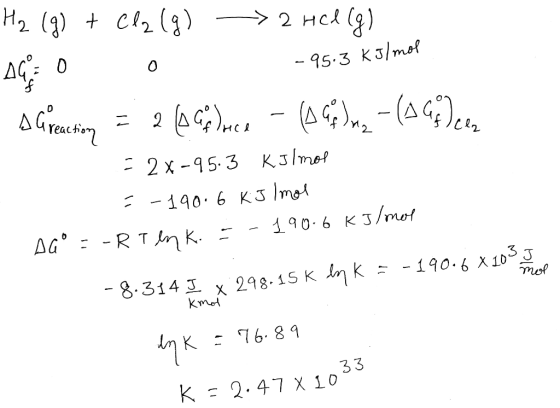 H₂ (g) + Cl₂ (g) ⟶ 2 HCl (g)
ΔG°f = 0 0 -95.3 KJ/mol
ΔG°reaction = 2 (ΔG°f)HCl - (ΔG°f)H₂ - (ΔG°f)Cl₂
= 2 x -95.3 KJ/mol
= -190.6 KJ/mol
ΔG° = -RT ln K. = - 190.6 KJ/mol
-8.314 J/Kmol x 298.15 K ln K = -190.6 x 10³ J/mol
ln K = 76.89
K = 2.47 x 10³³